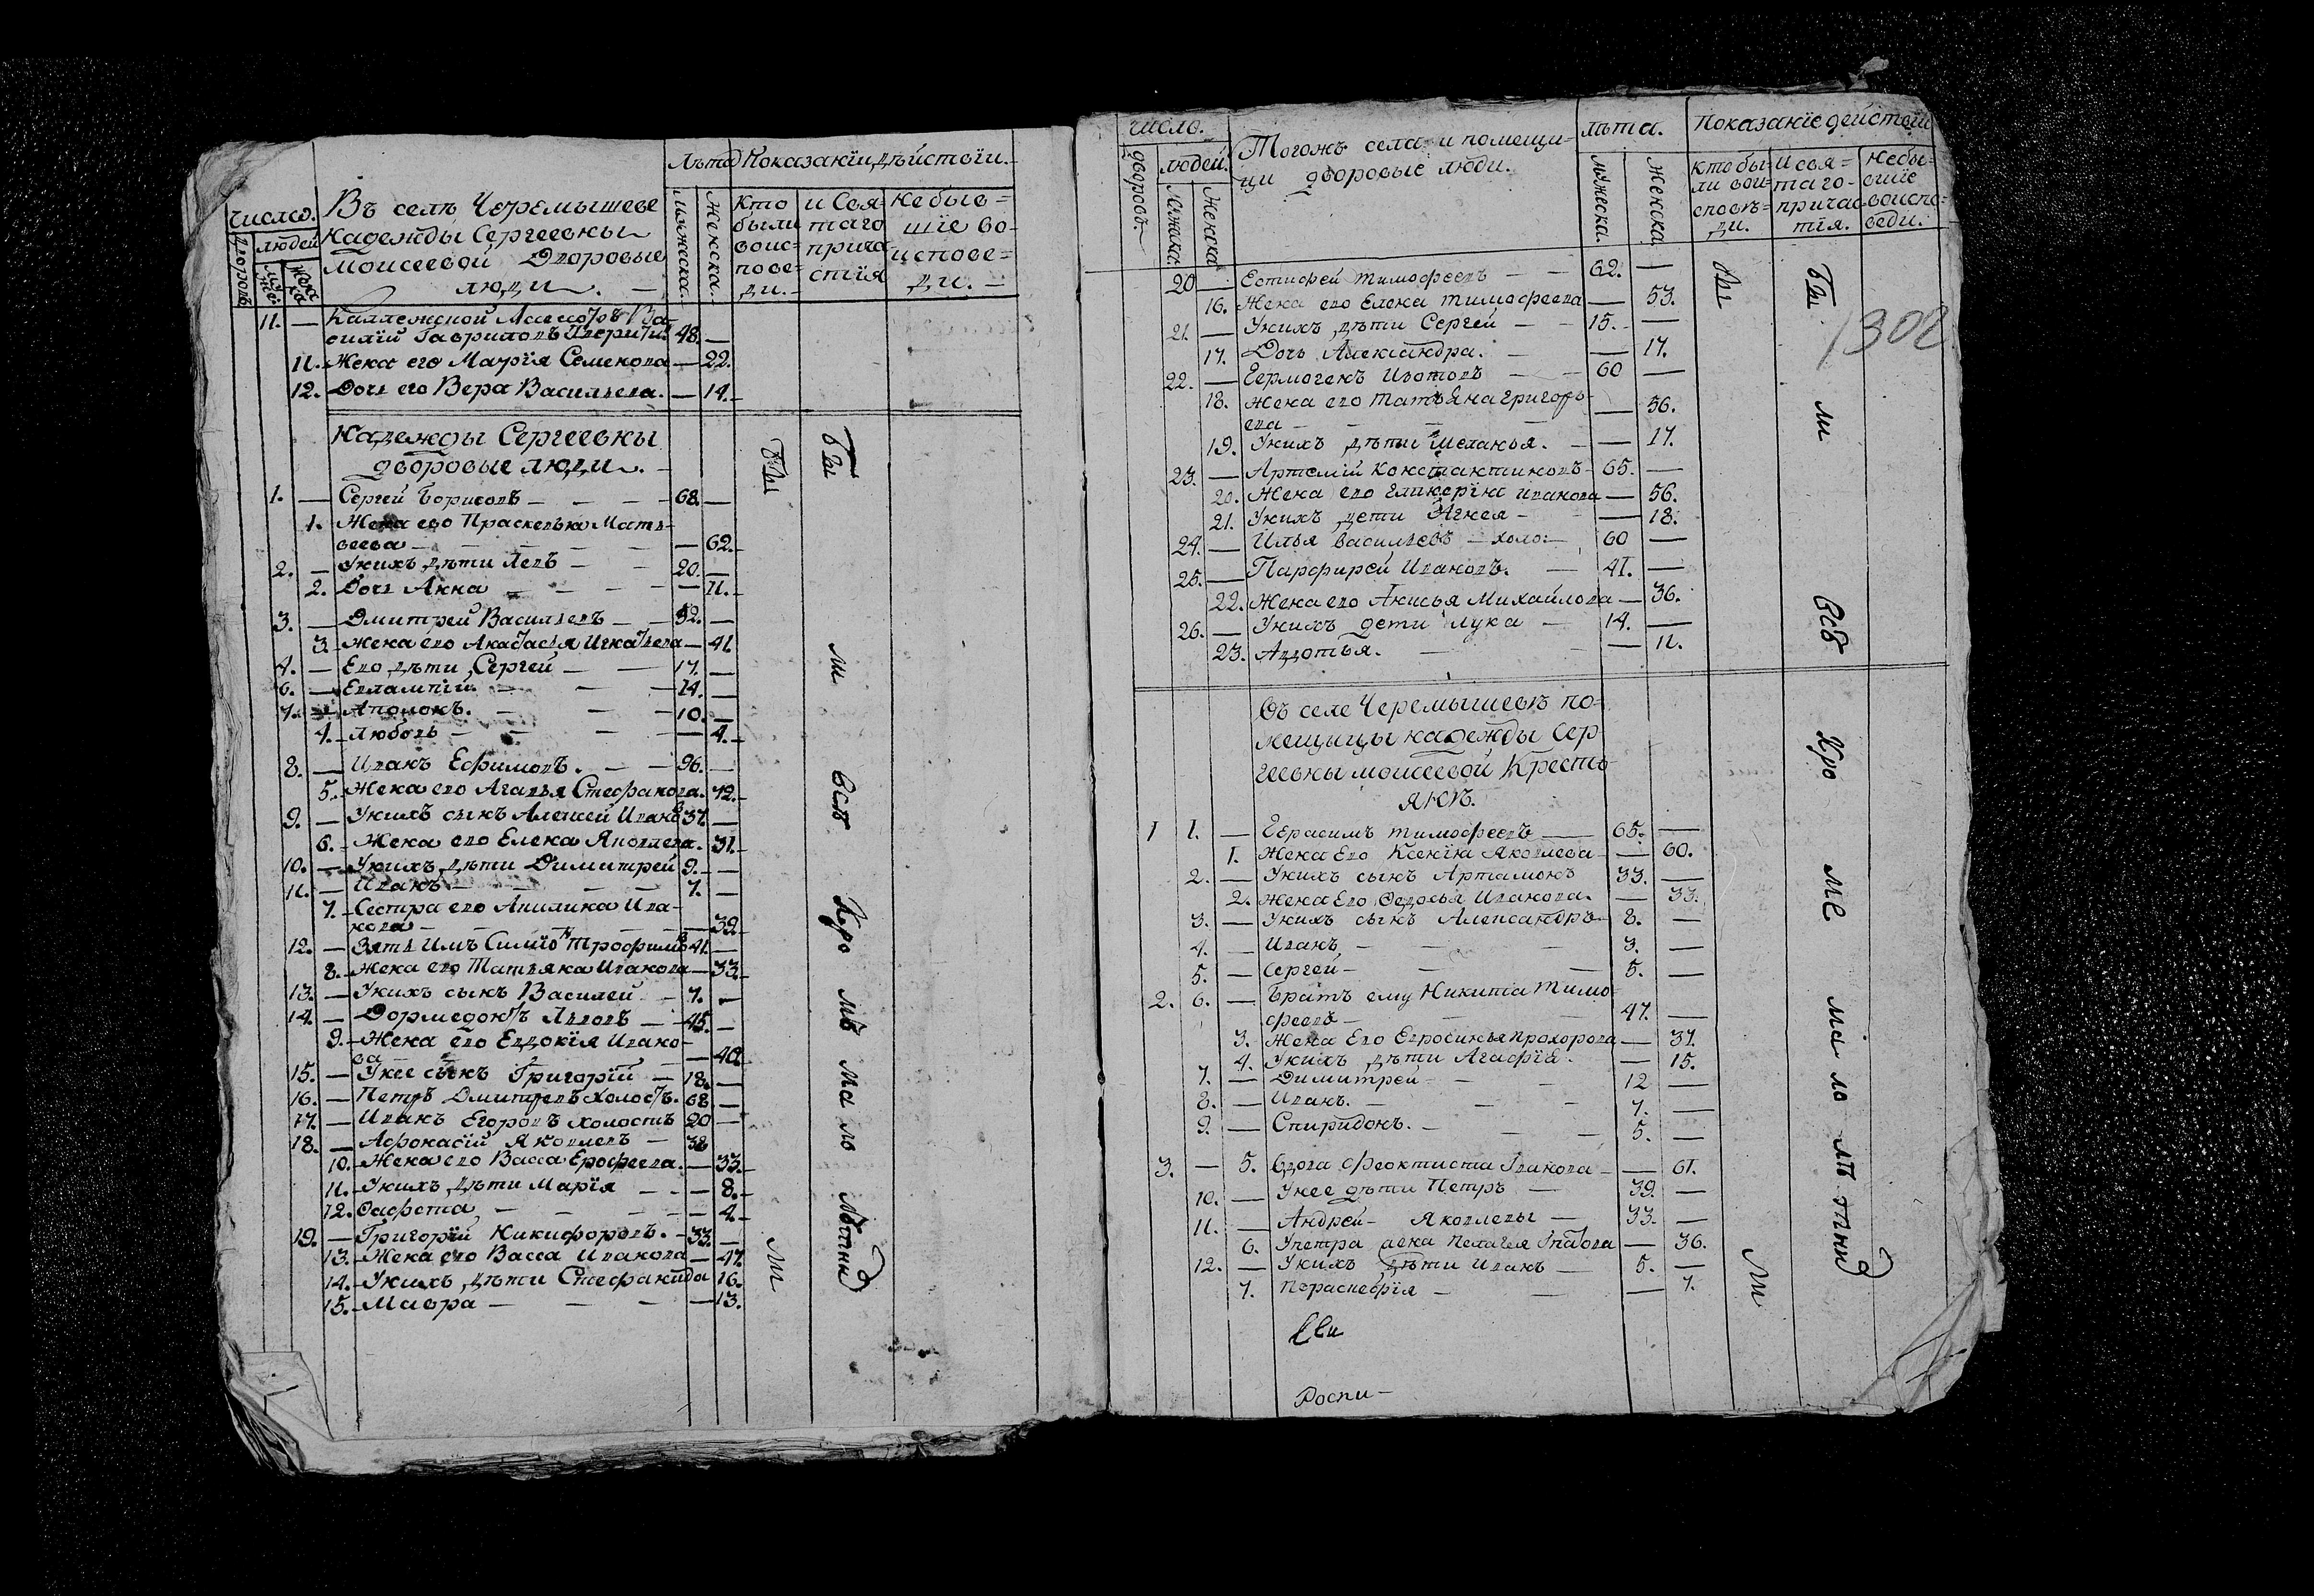 Число.
Дворовъ
людей
муж:
женска
Въ селѣ Черемышеве
Надежды Сергеевны
Моисеевой Дворовые
люди.
Лѣта Показанїи дѣйствїи.
мужска.
женска.
Кто
были
воис=
пове=
ди.
и Свя
таго
прича
стїя
небыв=
шїе во-
испове=
ди.
11. — Ва-
силїй Гавриловъ 48. —
11. Жена его Марїя Семенова — 22.
12. Дочь его Вера Васильева. — 14.
Надежды Сергеевны
дворовые люди.
1. — Сергей Борисовъ — 68. —
1. Жена ево Прасковья Матъ-
веева — 62.
2. — Унихъ дѣти Левъ — 20. —
2. Дочь Анна — 11.
3. — Дмитрей Васильевъ — 52. —
3. Жена ево Игнатьева — 41
4. — Ево дѣти Сергей — 17. —
6. — Евлампїй — 14. —
7. — Аполонъ. — 10. —
4. Любовь — 4.
8. — Иванъ Ефимовъ. — 96. —
5. Жена ево Агафья Стефанова. 72.
9. — Унихъ сынъ Алексей Ивановъ 37. —
6. Жена ево Елена Яковлева. 31.
10. — Унихъ дѣти Димитрей 9. —
11. — Иванъ — 7. —
7. Сестра его Акилина Ива-
нова — 39.
12. — Зять Имъ Трофимовъ 41. —
8. Жена ево Татьяна Иванова — 33.
13. — Унихъ сынъ Василей — 7. —
14. — Дормедонтъ Львовъ — 45. —
9. Жена ево Евдокїя Ивано-
ва — 40.
15. — Унее сынъ Григорїй — 18. —
16. — Петръ Дмитревъ Холостъ. 68 —
17. — Иванъ Егоровъ холостъ 20 —
18. — Афонасїй Яковлевъ — 38
10. Жена ево Васса Ерофеева. — 33.
11. Унихъ дѣти Марїя — 8.
12. — 4.
19. — Григорїй Никифоровъ. — 33. —
13. Жена ево Васса Иванова — 47.
14. Унихъ дѣти Стефанида 16.
15. Мавра — 13.
Бы
ли
Бы
ли
всѣ
Кро
мѣ
ма
ло
лѣтнихъ
число.
дворовъ.
людей.
мужска.
женска
Тогожъ села и помещи-
цы дворовые люди.
лѣта.
мужска.
женска
Показанїе действїи
кто бы-
ли вои-
сповѣ-
ди.
и свя=
таго-
причас
тїя.
небы=
вшїе
воиспо=
веди.
302
20 — Евтифей Тимофеевъ — 62. —
16. Жена ево Елена Тимофеева — 53.
21. — Унихъ дѣти Сергей — 15. —
17. Дочь Александра. — 17.
22. — Ермогенъ Изотовъ — 60 —
18. Жена ево Татьяна Григорь-
ева — 56.
19. Унихъ дѣти Меланья. — 17.
23. — Артемїй Константиновъ — 65. —
20. Жена ево Гликерїя Иванова — 56.
21. Унихъ дети Агнея — 18.
24. — Илья Васильевъ — холо: — 60 —
25. — Парфирей Ивановъ. — 41. —
22. Жена его Анисья Михайлова — 36.
26. — Унихъ дети Лука — 14. —
23. Авдотья. — 11.
Въ селе Черемышевѣ по-
мещицы надежды Сер-
геевны моисеевой Кресть-
янѣ.
1 1. — Герасимъ Тимофеевъ — 65. —
1. Жена Ево Ксенїя Яковлева — 60.
2. — Унихъ сынъ Артамонъ 33. —
2. Жена Ево Федосья Иванова. — 33.
3. — Унихъ сынъ Александръ 8. —
4. — Иванъ — 3. —
5. — Сергей — 5. —
2. 6. — Братъ ему Никита Тимо-
феевъ — 47. —
3. Жена Ево Евросинья Прохорова — 37.
4. Унихъ дѣти Агафїя. — 15.
7. — Димитрей — 12 —
8. — Иванъ. — 7. —
9. — Спиридонъ. — 5. —
3. — 5. Вдова Феоктиста Иванова — 61.
10. — Унее дѣти Петръ — 39. —
11. — Андрей — Яковлевы — 33. —
6. Упетра жена Пелагея — 36.
12. — Унихъ дѣти Иванъ — 5. —
7. Параскефїя — 7.
Бы
ли
Бы
ли
всѣ
Кро
ме
ма
ло
лѣтнихъ
Роспи-